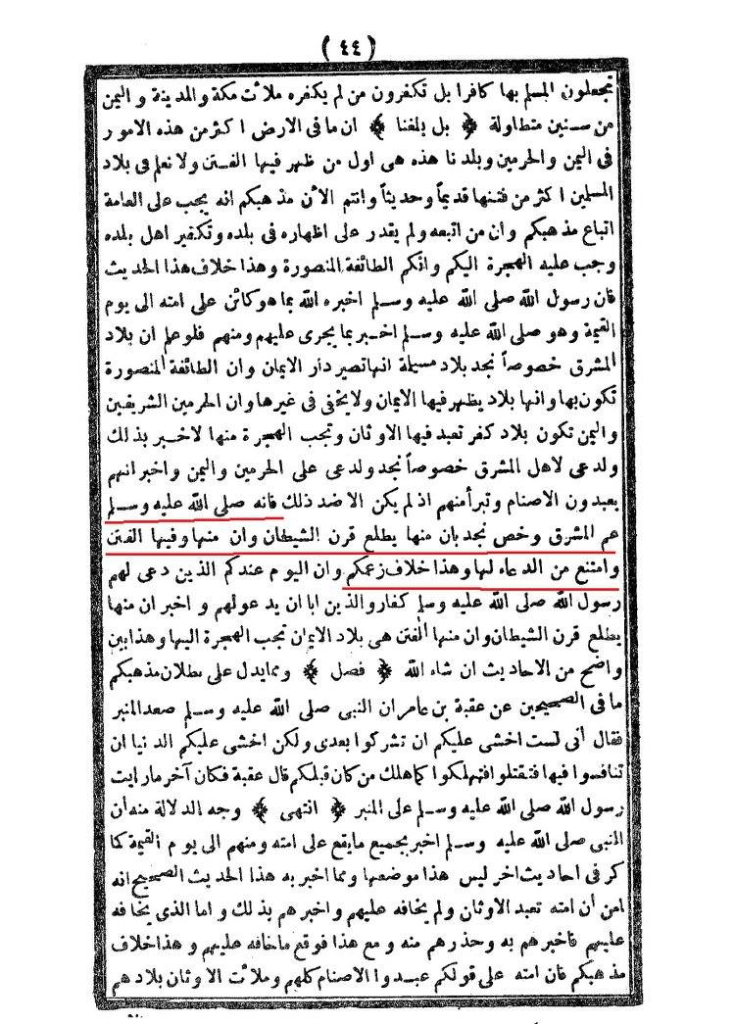 ( ٤٤ )
تجعلون المسلم بها كافرا بل تكفرون من لم يكفره ملأت مكة والمدينة واليمن
من سنين متطاولة ﴿ بل بلغنا ﴾ ان ما فى الارض اكثر من هذه الامور
فى اليمن والحرمين وبلدنا هذه هى اول من ظهر فيها الفتن ولا نعلم فى بلاد
المسلمين اكثر من فتنها قديماً وحديثاً وانتم الأن مذهبكم انه يجب على العامة
اتباع مذهبكم وان من اتبعه ولم يقدر على اظهاره فى بلده وتكفير اهل بلده
وجب عليه الهجرة اليكم وانكم الطائفة المنصورة وهذا خلاف هذا الحديث
فان رسول الله صلى الله عليه وسلم اخبره الله بما هو كائن على امته الى يوم
القيمة وهو صلى الله عليه وسلم اخبر بما يجرى عليهم ومنهم فلو علم ان بلاد
المشرق خصوصاً نجد بلاد مسيلمة انها تصير دار الايمان وان الطائفة المنصورة
تكون بها وانها بلاد يظهر فيها الايمان ولا يخفى فى غيرها وان الحرمين الشريفين
واليمن تكون بلاد كفر تعبد فيها الاوثان وتجب الهجرة منها لاخبر بذلك
ولدعى لاهل المشرق خصوصاً نجد ولدعى على الحرمين واليمن واخبر انهم
يعبدون الاصنام وتبرأ منهم اذ لم يكن الا ضد ذلك فانه صلى الله عليه وسلم
عم المشرق وخص نجد بان منها يطلع قرن الشيطان وان منها وفيها الفتن
وامتنع من الدعاء لها وهذا خلاف زعمكم وان اليوم عندكم الذين دعى لهم
رسول الله صلى الله عليه وسلم كفار والذين ابا ان يدعو لهم واخبر ان منها
يطلع قرن الشيطان وان منها الفتن هى بلاد الايمان تجب الهجرة اليها وهذا بين
واضح من الاحاديث ان شاه الله ﴿ فصل ﴾ ومما يدل على بطلان مذهبكم
ما فى الصحيحين عن عقبة بن عامر ان النبى صلى الله عليه وسلم صعد المنبر
فقال أنى لست اخشى عليكم ان تشركوا بعدى ولكن اخشى عليكم الدنيا ان
تنافسوا فيها فتقتلوا فتهلكوا كما هلك من كان قبلكم قال عقبة فكان آخر ما رايت
رسول الله صلى الله عليه وسلم على المنبر ﴿ انتهى ﴾ وجه الدلالة منه أن
النبى صلى الله عليه وسلم اخبر بجميع ما يقع على امته ومنهم الى يوم القيمة كما
كر فى احاديث اخر ليس هذا موضعها ومما اخبر به هذا الحديث الصحيح انه
امن أن امته تعبد الاوثان ولم يخافه عليهم واخبرهم بذلك واما الذى يخافه
عليهم فاخبرهم به وحذرهم منه ومع هذا فوقع ما خافه عليهم وهذا خلاف
مذهبكم فان امته على قولكم عبدوا الاصنام كلهم وملأت الاوثان بلادهم